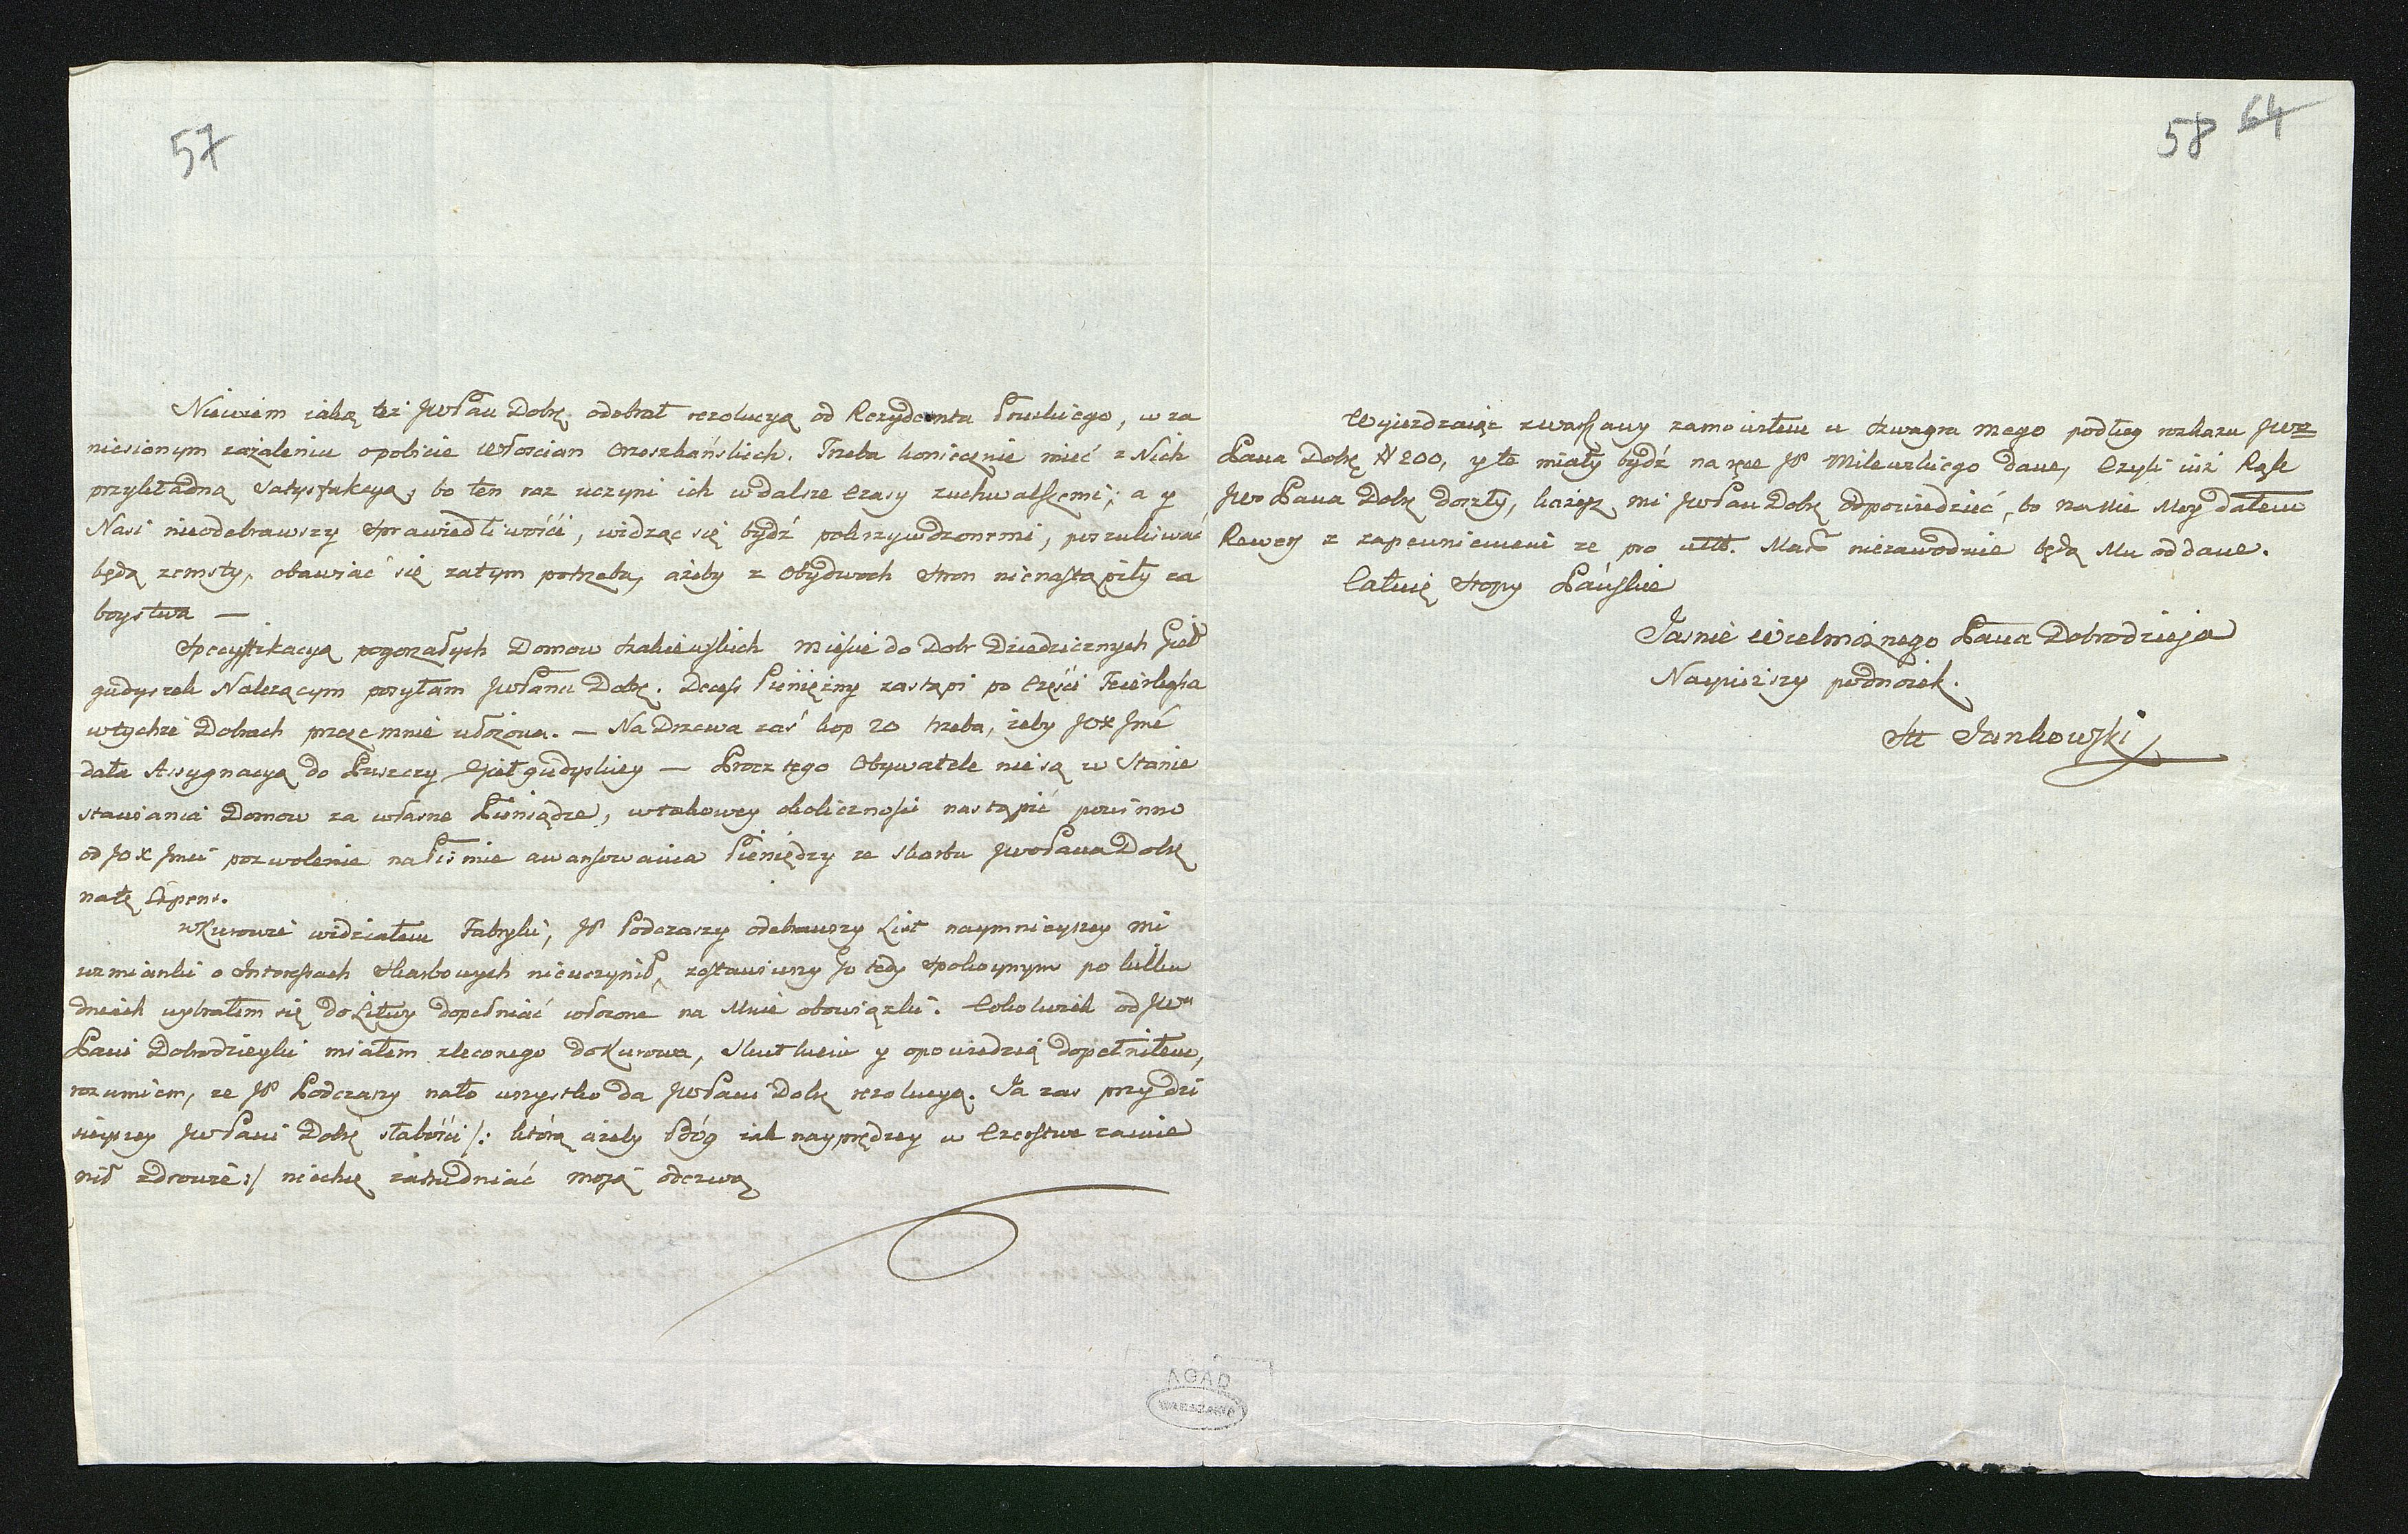 57
Niewiem iaką też JWPan Dobr. odebrał rezolucyą od Rezydenta Pruskiego, w za
niesionym zażaleniu opobicie Włoscian Orzeszkańskich. Trzeba koniecznie mieć z Nich
przykładną satysfakcyą, bo ten raz uczyni ich wdalsze czasy zuchwalszemi; a y
Nasi nieodebrawszy sprawiedliwości, widząc się bydź pokrzywdzonemi, poszukiwać
będą zemsty, obawiać się zatym potrzeba, ażeby z obydwoch stron nienastąpiły za
boystwa —
Specyfikacyą pogorzałych Domow Szakiewskich Mieście do Dobr Dziedzicznych Gieł
gudyszek Nalezącym posyłam JWPanu Dobr. Decess Pieniężny zastąpi po części
wtychże Dobrach przezemnie ułożona. — Na Drzewa zaś kop 20 trzeba, żeby JOX Jmć
dała Assygnacyą do Puszczy Giełgudyskiey — Procz tego Obywatele nie są w Stanie
stawiania Domow za własne Pieniądze, wtakowey okoliczności nastąpić powinno
od JOX Jmci pozwolenie na Piśmie awansowania Pieniędzy ze skarbu JWo Pana Dobr
natę Expens.
wKurowie widziałem Fabryki, JP Podczaszy odebrawszy List naymnieyszey mi
wzmianki o Interessach Skarbowych nieuczynił, zostawiwszy Go tedy spokoynym po kilku
dniach wybrałem się do Litwy dopełniać włożone na Mnie obowiązki. Cokolwiek od JW
Pani Dobrodzieyki miałem zleconego do Kurowa, skutkiem y opowiedzią dopełniłem,
rozumiem, ze JP Podczaszy nato wszystko da JWPani Dobr rezolucyą. Ja zas przy dzi
sieyszey JWPani Dobr słabości /: którą ażeby Bóg iak nayprędzey w czerstwe zamie
nił zdrowie :/ niechcę zatrudniać moją odezwą

58 64
Wyjezdzaiąc zwarszawy zamowiłem u szwagra mego podług rozkazu JWo
Pana Dobr # 200, y te miały bydź na ręce JP Milewskiego dane, Czyli iuż Rąk
JWo Pana Dobr doszły, każesz mi JWPan Dobr odpowiedzieć, bo na nie Moy dałem
Rewers z zapewnieniem ze pro niezawodnie będą Mu oddane.
Całuię stopy Pańskie
Jasnie Wielmożnego Pana Dobrodzieja
Nayniższy podnóżek.
St Jankowski
AGAD
WARSZAWA